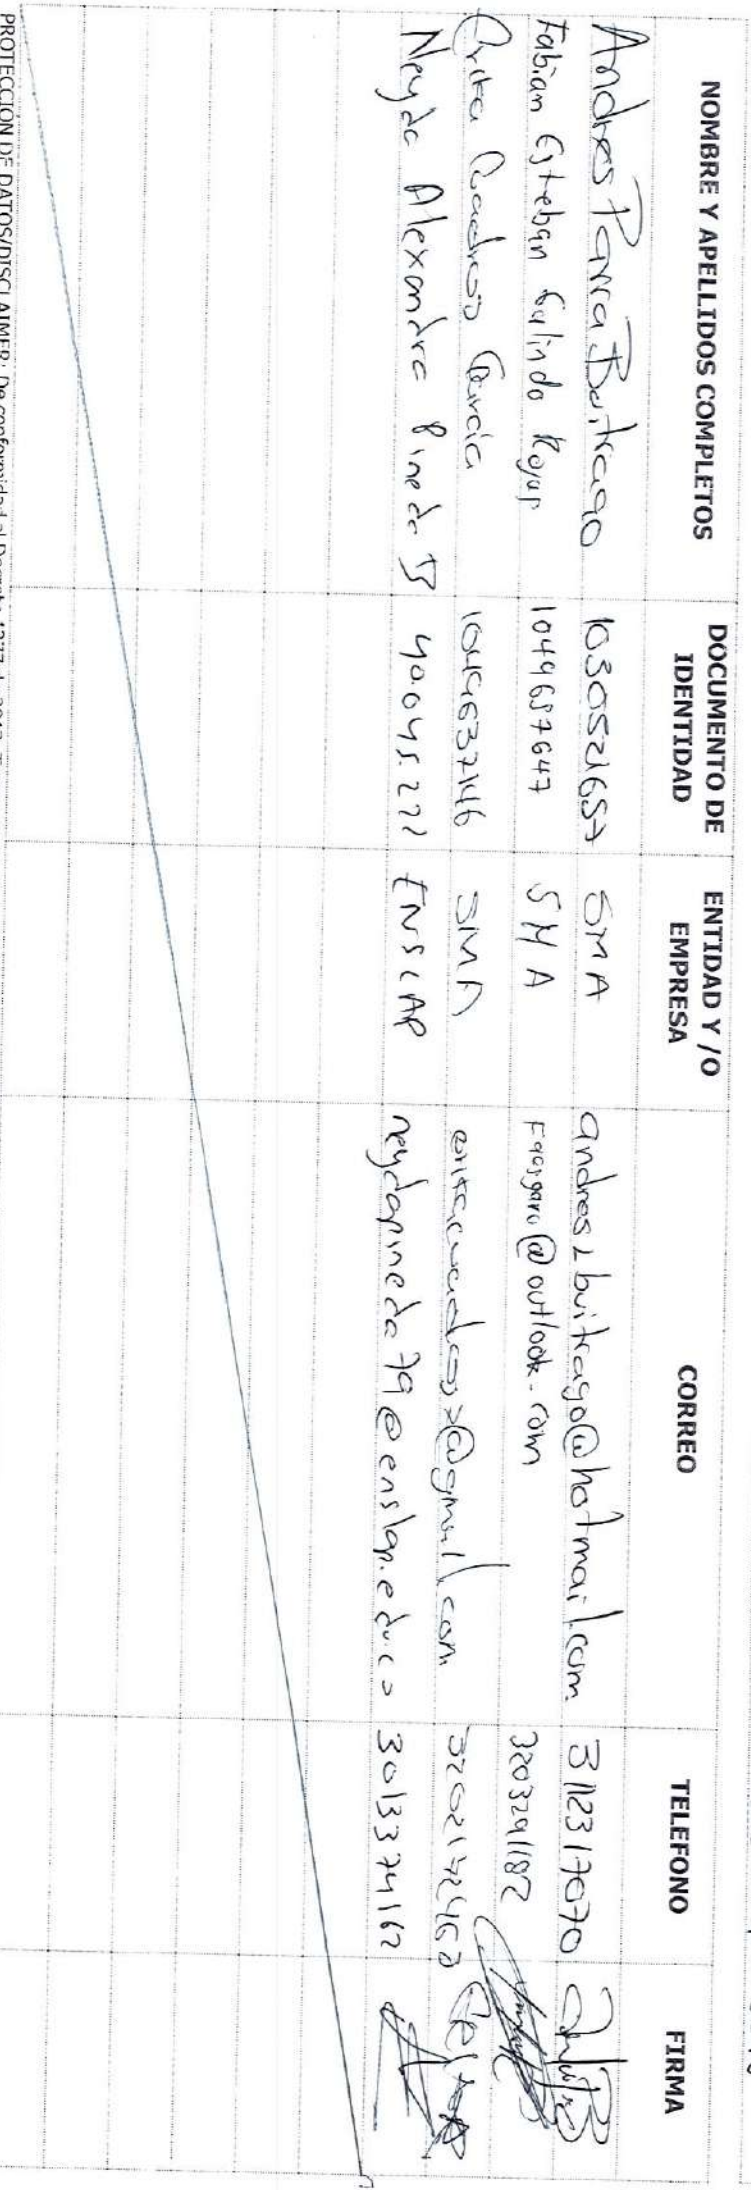 NOMBRE Y APELLIDOS COMPLETOS DOCUMENTO DE IDENTIDAD ENTIDAD Y /O EMPRESA CORREO TELEFONO FIRMA
Andres Parra Buitrago 1030521657 SMA andres_buitrago@hotmail.com 3112317070
Fabian Esteban Galindo Rojas 1049657647 SMA @outlook.com 3203291182
Erika Cuadros Garcia 1049637146 SMA @gmail.com
Neyda Alexandra Pineda B 40.045.272 ENSLAP neydapineda79@enslap.edu.co 3013374162
PROTECCION DE DATOS/DISCLAIMER: De conformidad al Decreto 1377 de 2013